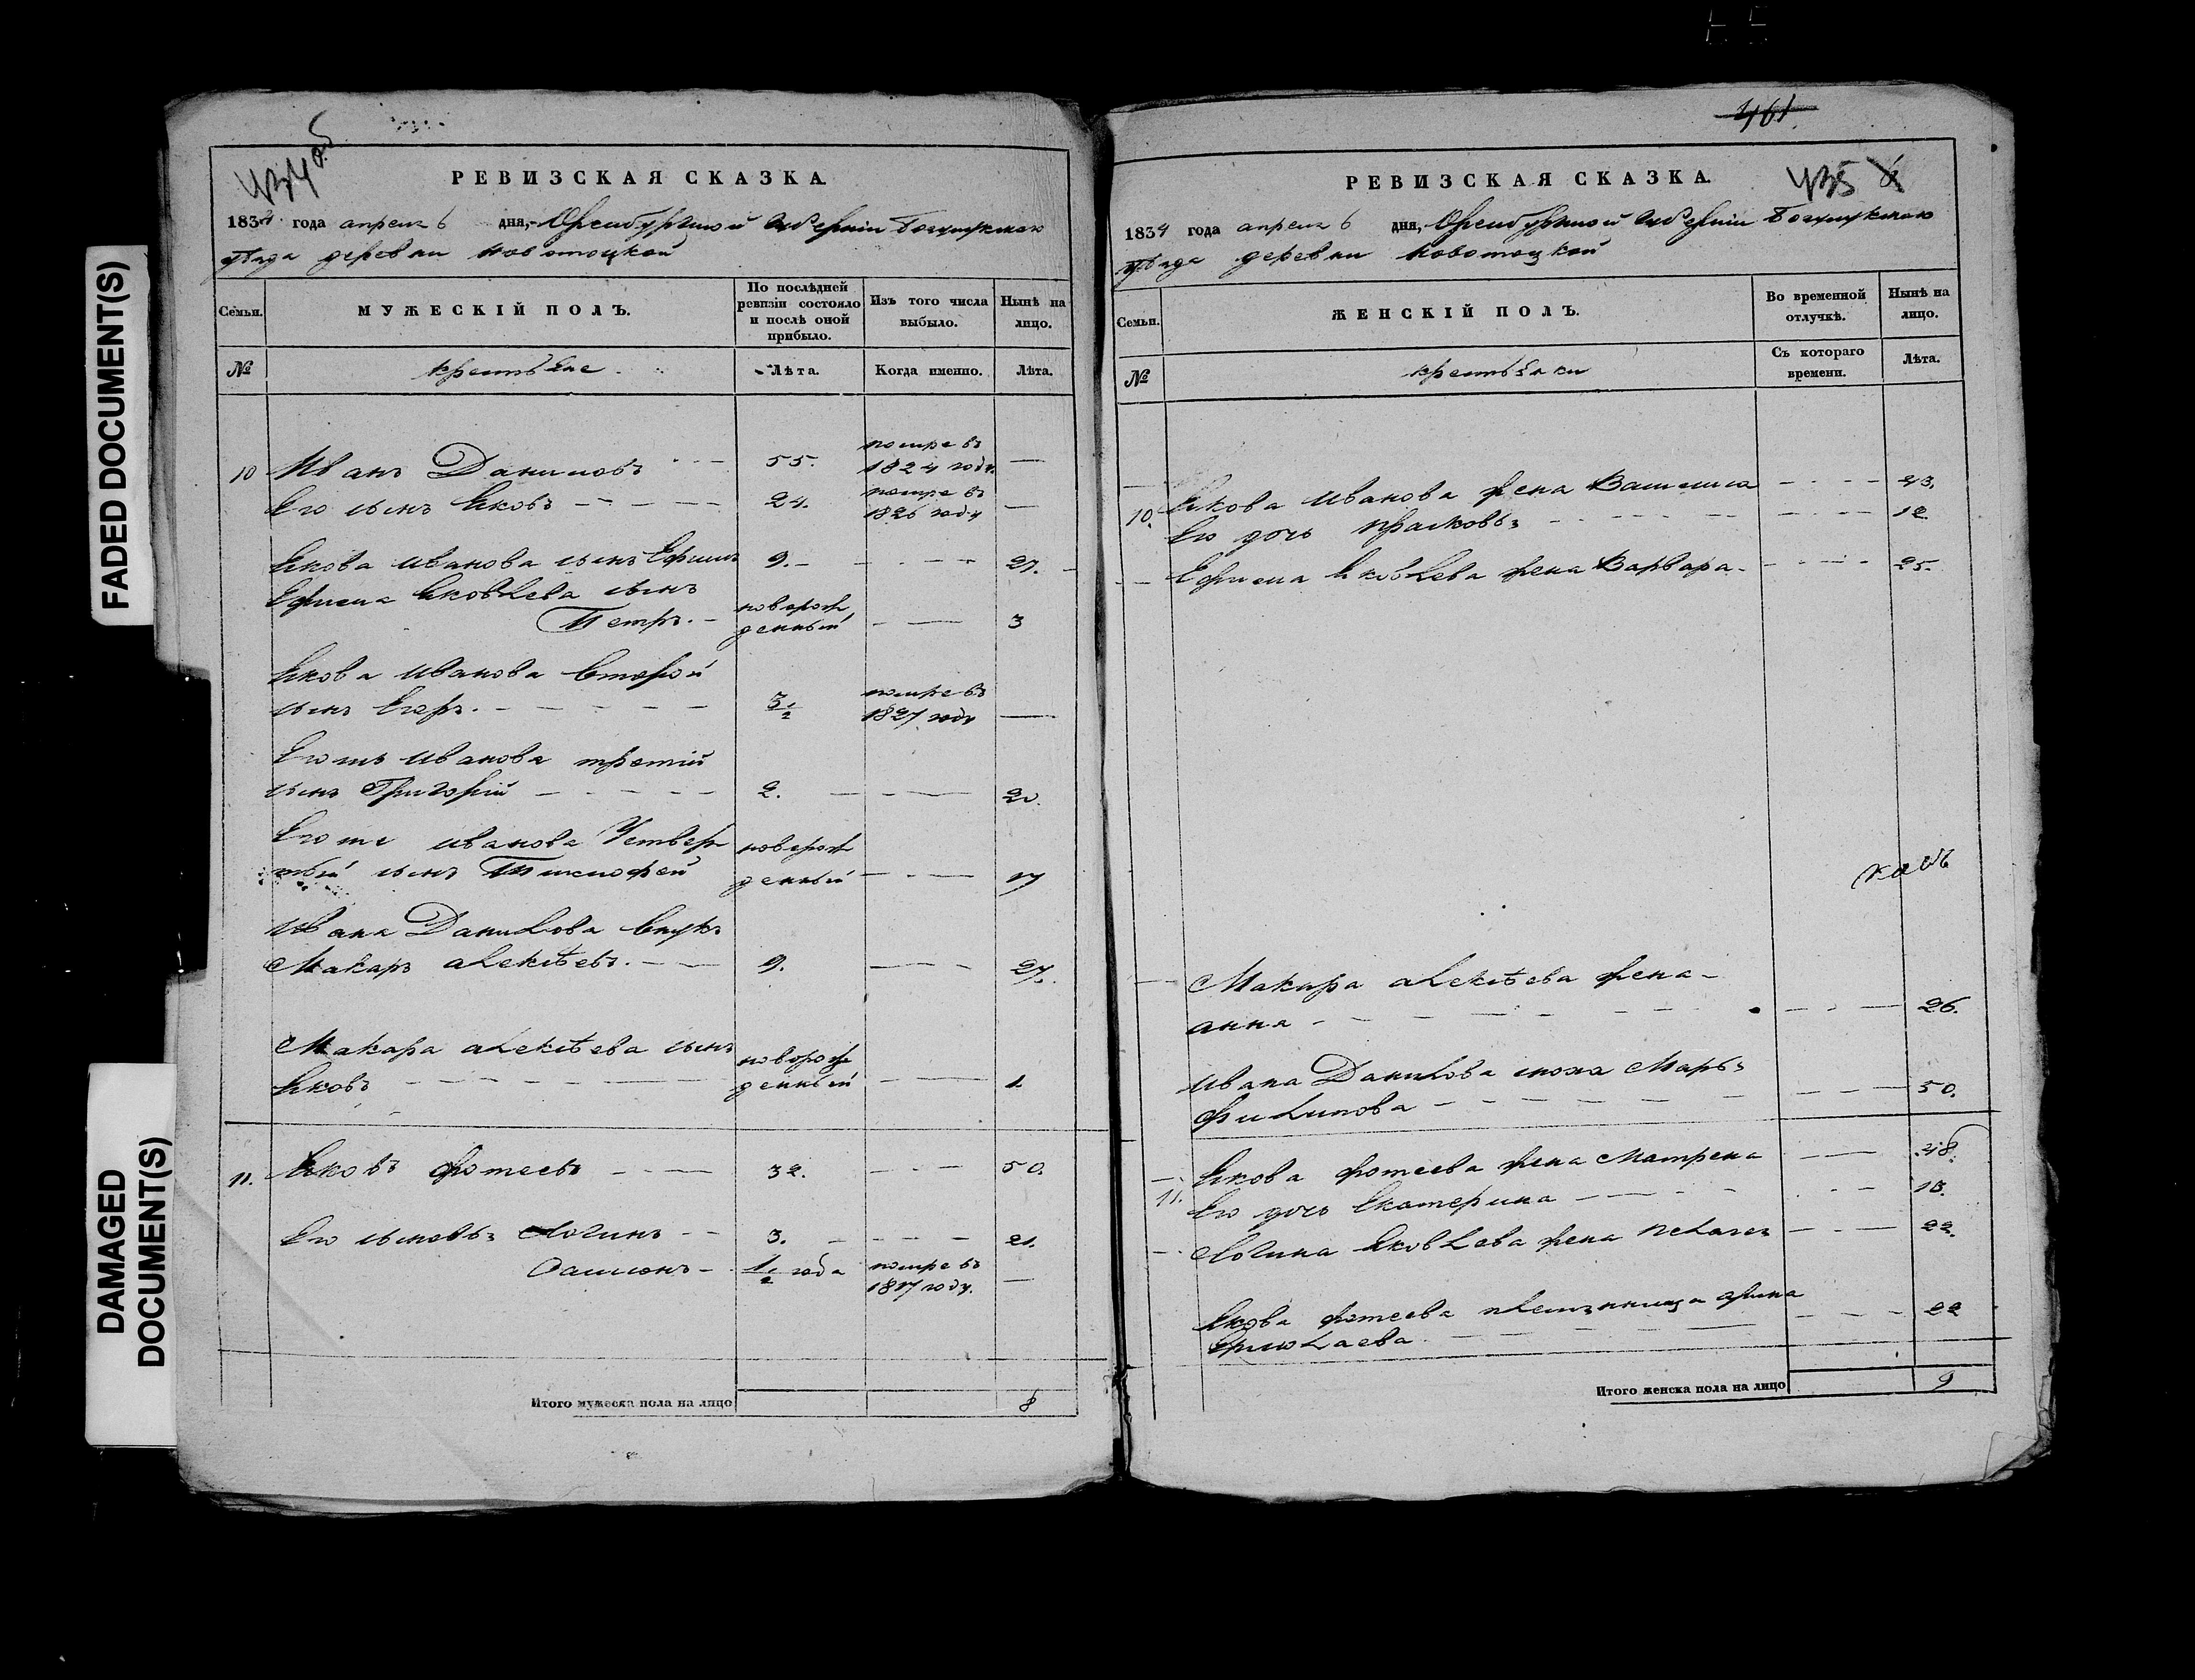 FADED DOCUMENT(S)
DAMAGED DOCUMENT(S)
434 об
РЕВИЗСКАЯ СКАЗКА.
1834 года апреля 6 дня, Оренбургской Губернии Богульмскаго
уѣзда деревни новотоцкой
Семьи. МУЖЕСКІЙ ПОЛЪ. По послѣдней ревизіи состояло и послѣ оной прибыло. Изъ того числа выбыло. Нынѣ на лицо.
№ крестьяне Лѣта. Когда именно. Лѣта.
10 Иванъ Даниловъ 55. помре въ 1824 году. —
Его сынъ Яковъ 24. помре въ 1826 году —
Якова Иванова сынъ Ефимъ 9. 27.
Ефима Яковлева сынъ
Петръ. новорожденный 3
Якова Иванова второй
сынъ Егоръ. 3 1/2 помре въ 1827 году —
Егожъ Иванова третий
сынъ Григорій 2. 20.
Егоже Иванова Четвер
тый сынъ Тимофей новорожденный 17
Ивана Данилова внукъ
Макаръ алексѣевъ. 9. 27.
Макара алексѣева сынъ
Яковъ новорожденный 1
11. Яковъ фотеевъ 32. 50.
Его сыновья Логинъ 3. 21.
Самсонъ 1/2 года помре въ 1817 году. —
Итого мужеска пола на лицо 8
461.
435
РЕВИЗСКАЯ СКАЗКА.
1834 года апреля 6 дня, Оренбургской Губернии Богульмскаго
уѣзда деревни новотоцкой
Семьи. ЖЕНСКІЙ ПОЛЪ. Во временной отлучкѣ. Нынѣ на лицо.
№ крестьянки Съ котораго времени. Лѣта.
10. Якова Иванова жена Василиса 43.
Его дочь прасковья 12
Ефима Яковлева жена Варвара 25.
Макара алексѣева жена
анна 26.
Ивана Данилова сноха Марья
филипова 50.
11. Якова фотеева жена матрена 48.
Его дочь Екатерина 13.
Логина Яковлева жена пелагея 22.
Якова фотеева племянница арина
Ермолаева 22
Итого женска пола на лицо 9